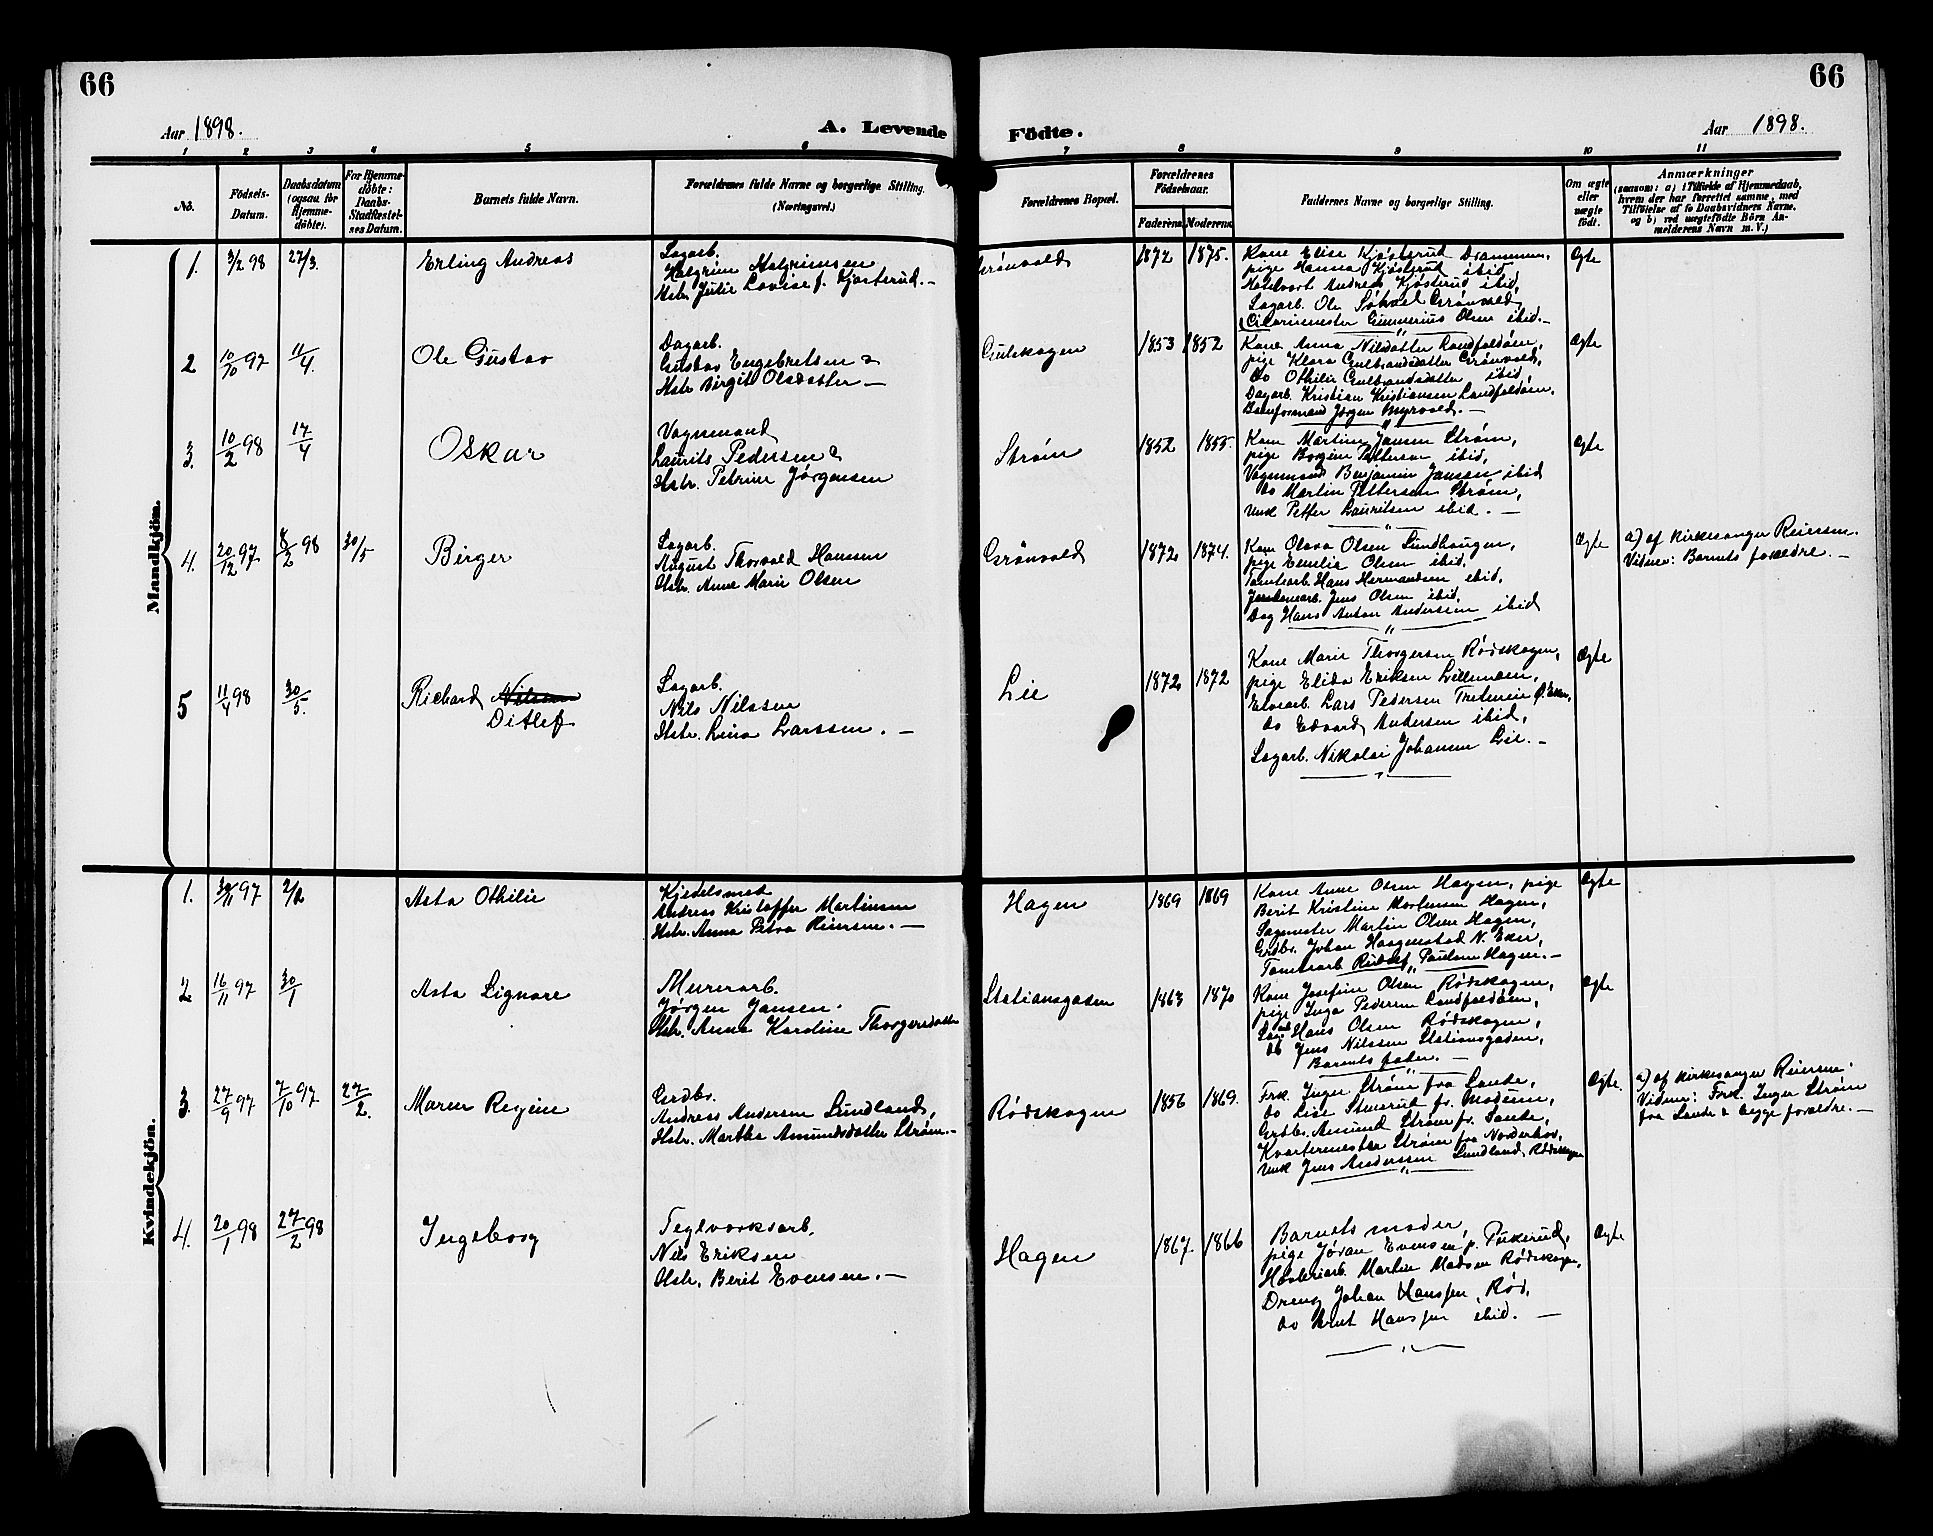 66
66
Aar 1898.
A. Levende Födte.
Aar 1898.
1 2 3 4 5 6 7 8 9 10 11
No.
Födsels-Datum.
Daabsdatum (ogsaa for Hjemme-döbte).
For Hjemme-döbte: Daabs-Stadfæstel-ses Datum.
Barnets fulde Navn.
Forældrenes fulde Navne og borgerlige Stilling. (Næringsvei.)
Forældrenes Bopæl.
Forældrenes Födselsaar.
Faderens Moderens
Faddernes Navne og borgerlige Stilling.
Om ægte eller uægte födt.
Anmærkninger
(saasom: a) i Tilfælde af Hjemmedaab, hvem der har forrettet samme, med Tilföielse af to Daabsvidners Navne, og b) ved uægtefödte Börn Anmelderens Navn m. V.)
Mandkjön.
1. 3/2 98 27/3. Erling Andreas
Sagarb.
Halgrim Halgrimsen
Hstr. Julie Lovise f. Kjøsterud. —
Grønvold 1872 1875.
Kone Elise Kjøsterud Drammen,
pige Hanna Kjøsterud ibid,
Andreas Kjøsterud ibid,
Sagarb. Ole Grønvold,
Gunnerius Olsen ibid. —
Ægte
2 10/10 97 11/4. Ole Gustav
Dagarb.
Gustav Engebretsen &
Hstr. Birgit Olsdatter —
Gulskogen 1853 1852
Kone Anna Nilsdatter Landfaldøen,
pige Klara Gulbrandsdatter Grønvold,
do Othilie Gulbrandsdatter ibid,
Dagarb. Kristian Kristiansen Landfaldøen,
Baneformand Jørgen Myrvold. —
Ægte
3. 10/2 98 17/4 Oskar
Vognmand
Laurits Pedersen &
Hstr. Petrine Jørgensen
Strøm 1852 1855.
Kone Martine Jansen Strøm,
pige Borgine Pettersen ibid,
Vognmand Benjamin Jansen ibid
do Martin Pettersen Strøm,
Unk Petter Lauritsen ibid. —
Ægte
4. 20/12 97 8/2 98 30/5 Birger
Sagarb.
August Thorvald Hansen
Hstr. Anne Marie Olsen
Grønvold 1872 1874.
Kone Olava Olsen Sundhaugen,
pige Emelie Olsen ibid.
Tomtearb. Hans Hermandsen ibid,
Jens Olsen ibid,
Dag Hans Anton Anderssen ibid
Ægte
a) af Kirkesanger Reiersen.
Vidner: Barnets forældre. —
5 11/4 98 30/5. Richard Nilsen
Ditlef
Sagarb.
Nils Nilssen
Hstr. Lina Larssen. —
Lie 1872 1872
Kone Marie Thorgersen Rødskogen,
pige Elida Eriksen Lillemoen,
Elvearb. Lars Pedersen Ø. Eker,
do Edvard Andersen ibid,
Sagarb. Nikolai Johansen Lie. —
Ægte
Kvindekjön.
1. 30/11 97 2/2 Asta Othilie
Kjedelsmed
Andreas Kristoffer Martinsen
Hstr. Anna Petra Reiersen. —
Hagen 1869 1869
Kone Anne Olsen Hagen, pige
Berit Kristine Mortensen Hagen,
Sagmester Martin Olsen Hagen,
Grdbr. Johan Haagenstad N. Eker,
Tomtearb Rudolf Paulsen Hagen. —
Ægte
2 16/11 97 30/1 Asta Signore
Murerarb.
Jørgen Jansen.
Hstr. Anna Karoline Thorgersdatter
Stationsgaden 1863 1870
Kone Josefine Olsen Rødskogen,
pige Inga Pedersen Landfaldøen,
Hans Olsen Rødskogen,
do Jens Nilssen Stationsgaden,
Barnets fader. —
Ægte
3. 27/9 97 7/10 97 27/2. Maren Regine
Grdbr.
Andreas Andersen Sundland,
Hstr. Martha Amundsdatter Strøm. —
Rødskogen 1856 1869.
Frk. Inger Strøm fra Sande,
do Lise Stuerud fr. Modum,
Grdbr. Amund Strøm fr. Sande,
Kvartermester Strøm fra Norderhov,
Unk Jens Anderssen Sundland, Rødskogen
Ægte.
a) af Kirkesanger Reiersen.
Vidner: Frk. Inger Strøm
fra Sande & begge forældre. —
4. 20/1 98 27/2 98 Ingeborg
Teglverksarb.
Nils Eriksen
Hstr. Berit Evensen. —
Hagen 1867. 1866
Barnets moder,
pige Jøran Evensen p. Pukerud,
Martin Madsen Rødskogen,
Dreng Johan Hanssen, Rød,
do Knut Hanssen ibid. —
Ægte